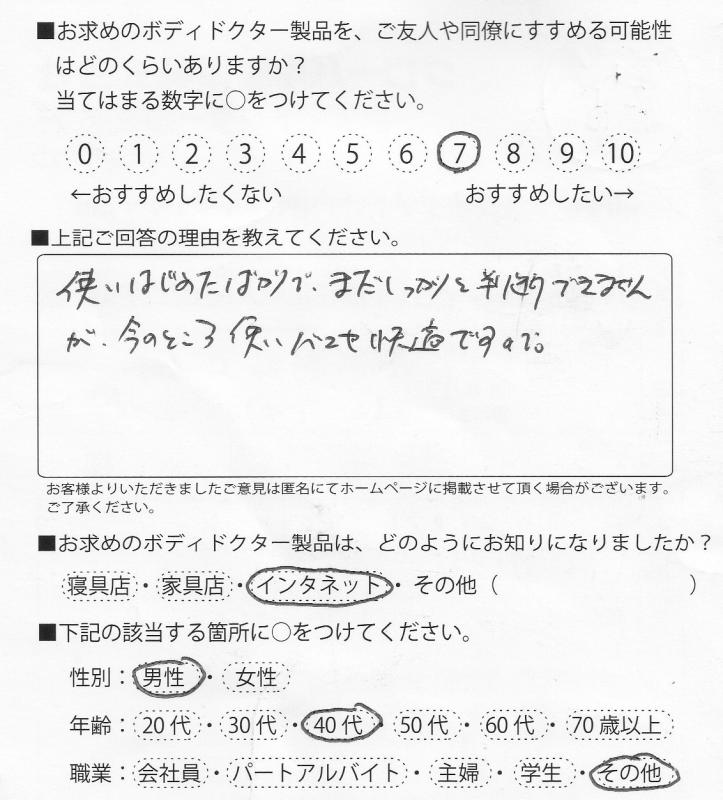 ■お求めのボディドクター製品を、ご友人や同僚にすすめる可能性
はどのくらいありますか？
当てはまる数字に○をつけてください。
0 1 2 3 4 5 6 7 8 9 10
←おすすめしたくない おすすめしたい→
■上記ご回答の理由を教えてください。
使いはじめたばかりで、まだしっかりと判断できません
が、今のところ使い心地も快適ですので。
お客様よりいただきましたご意見は匿名にてホームページに掲載させて頂く場合がございます。
ご了承ください。
■お求めのボディドクター製品は、どのようにお知りになりましたか？
寝具店・家具店・インタネット・その他（ ）
■下記の該当する箇所に○をつけてください。
性別：男性・女性
年齢：20代・30代・40代・50代・60代・70歳以上
職業：会社員・パートアルバイト・主婦・学生・その他